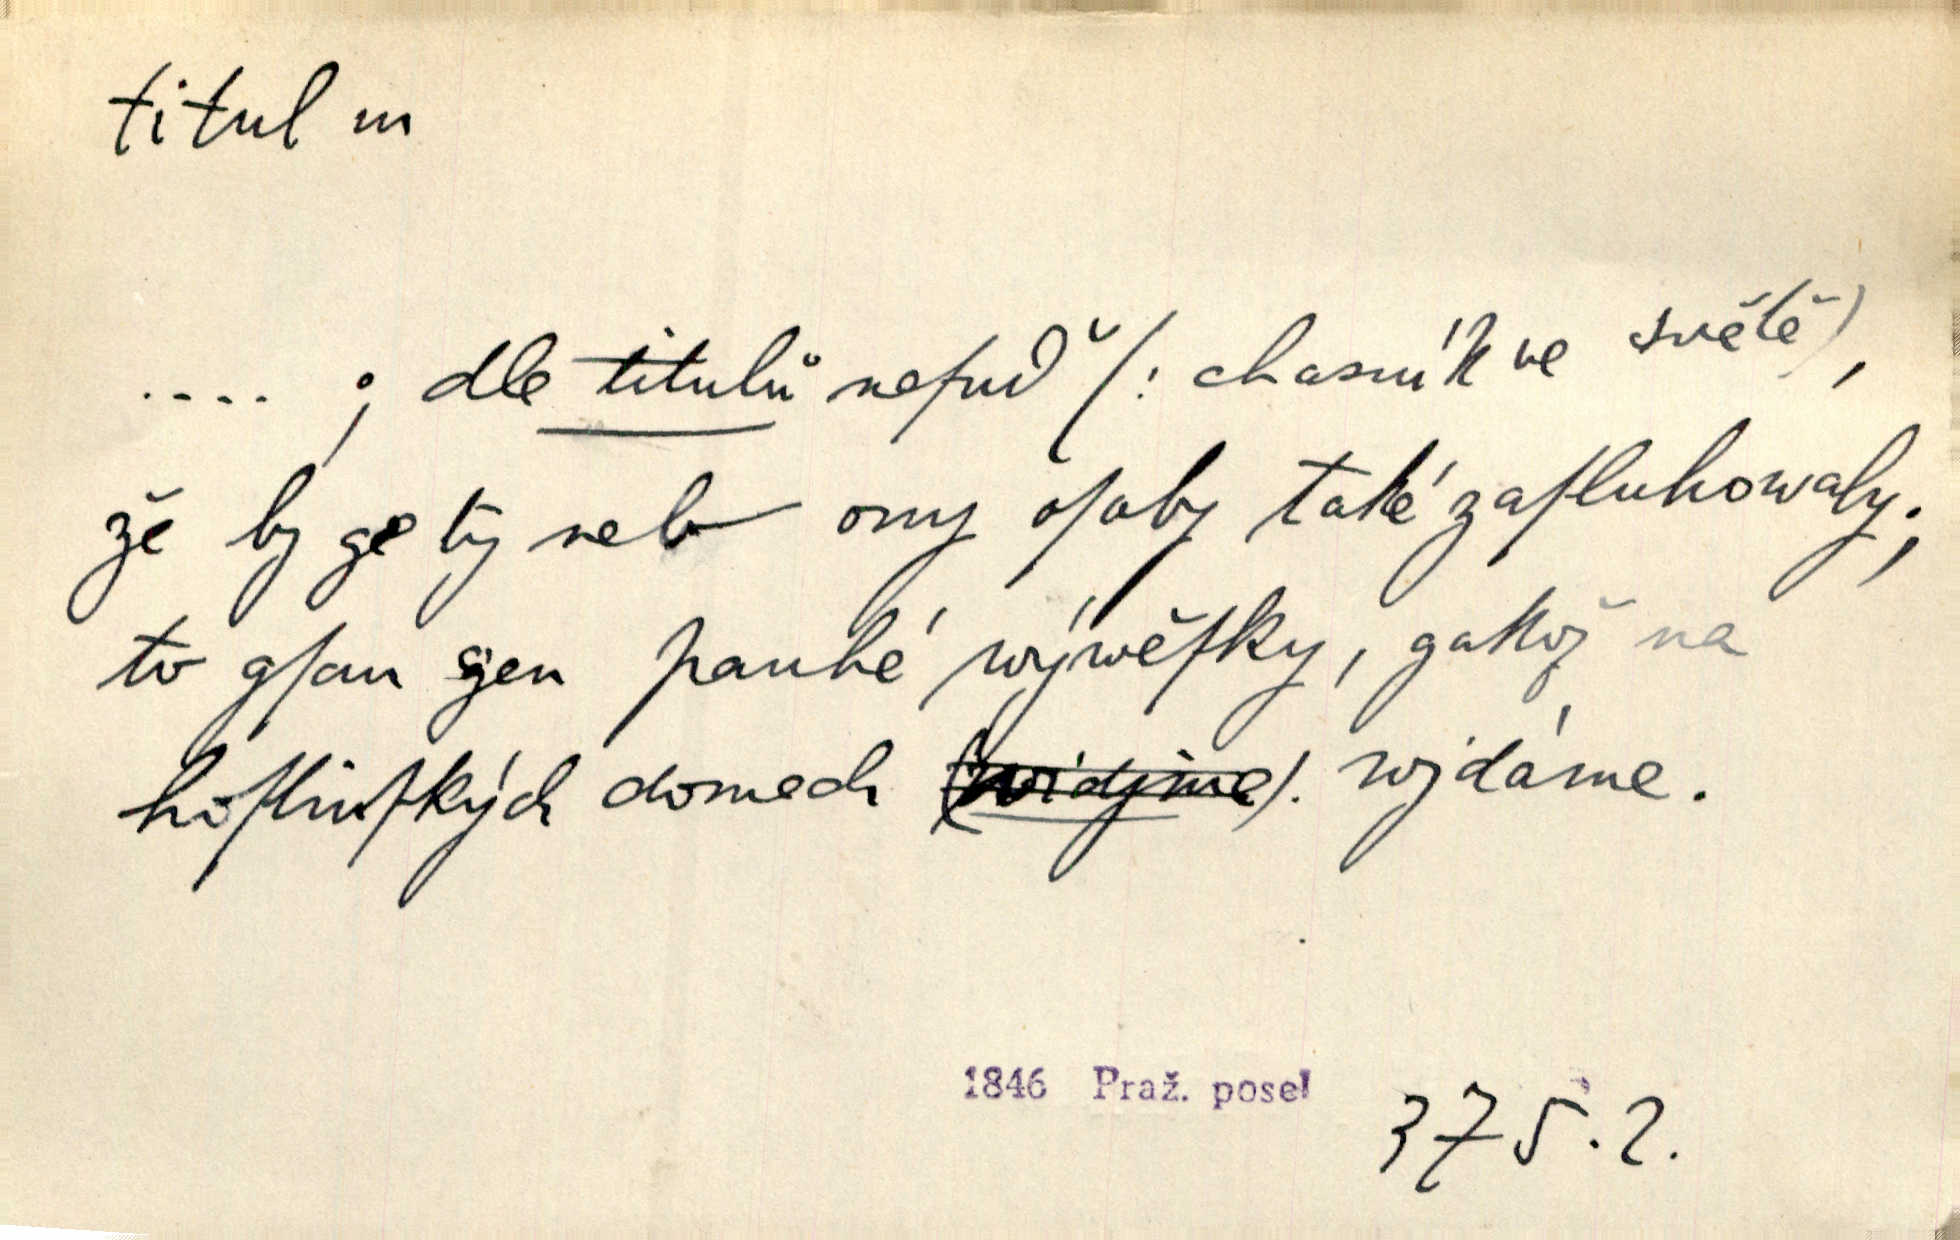 titul m
.... ; dle titulů nesuď (: chasník ve světě),
že by ge ty neb ony osoby také zasluhowaly;
to gsau gen pauhé wýwěsky, gakož na
hostinských domech (widjme). wjdáme.
1846 Praž. posel
375.2.